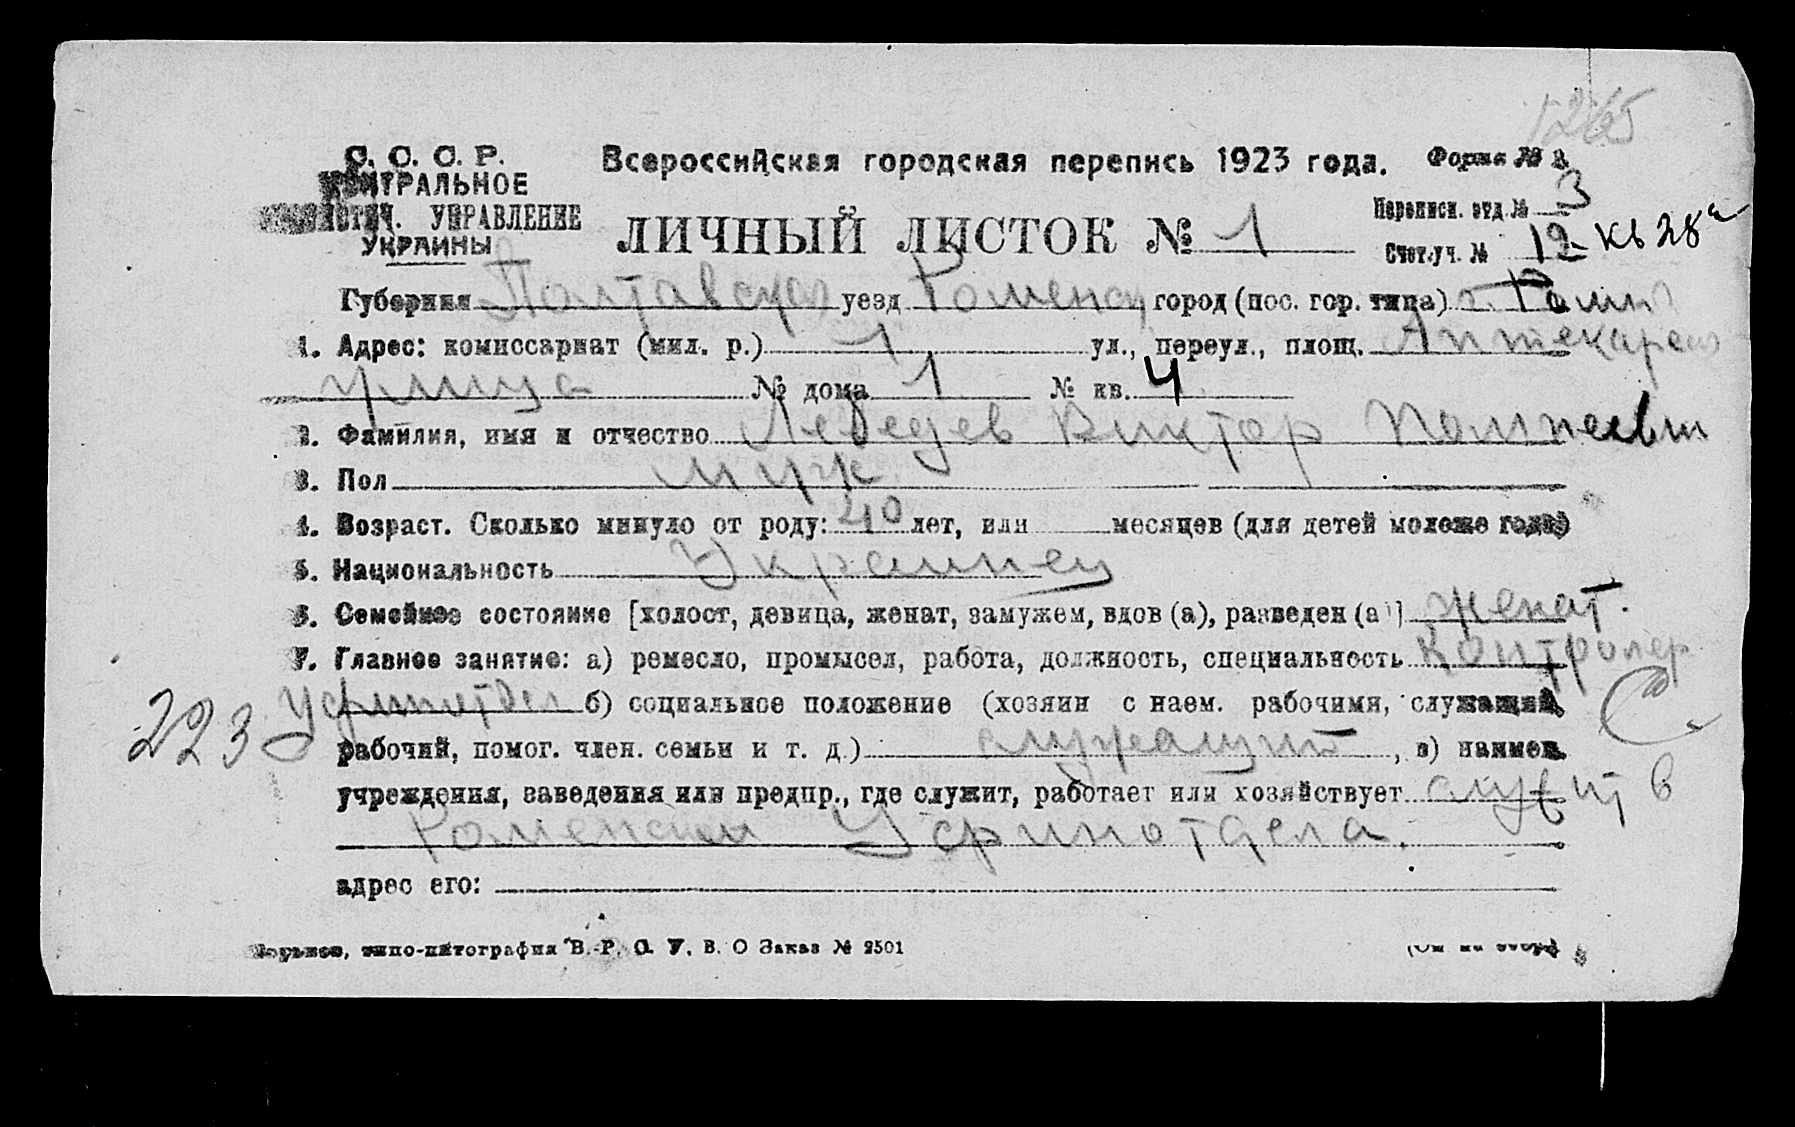 1265
С. С. С. Р. Всероссийская городская перепись 1923 года. Форма №
ЦЕНТРАЛЬНОЕ
СТАТИСТИЧ. УПРАВЛЕНИЕ
УКРАИНЫ
ЛИЧНЫЙ ЛИСТОК № 1
Переписн. отд. № 3
Счет. уч. № 12 кв 28
Губерния Полтавская уезд Роменск город (пос. гор. типа) г. Ромны
1. Адрес: комиссариат (мил. р.) 1 ул., переул., площ. Аптекарская
улица № дома 1 № кв. 4
2. Фамилия, имя и отчество Лебедев Виктор Помпеевич
3. Пол муж
4. Возраст. Сколько минуло от роду: 40 лет, или месяцев (для детей моложе года)
5. Национальность Украинец
6. Семейное состояние [холост, девица, женат, замужем, вдов (а), разведен (а)] женат.
7. Главное занятие: а) ремесло, промысел, работа, должность, специальность Контролер
Уфинотдел б) социальное положение (хозяин с наем. рабочими, служащий,
223
рабочий, помог. член. семьи и т. д.) служащий, в) наимен.
учреждения, заведения или предпр., где служит, работает или хозяйствует служит в
Роменском Уфинотдела.
адрес его:
Харьков, типо-литография В. О Заказ № 2501